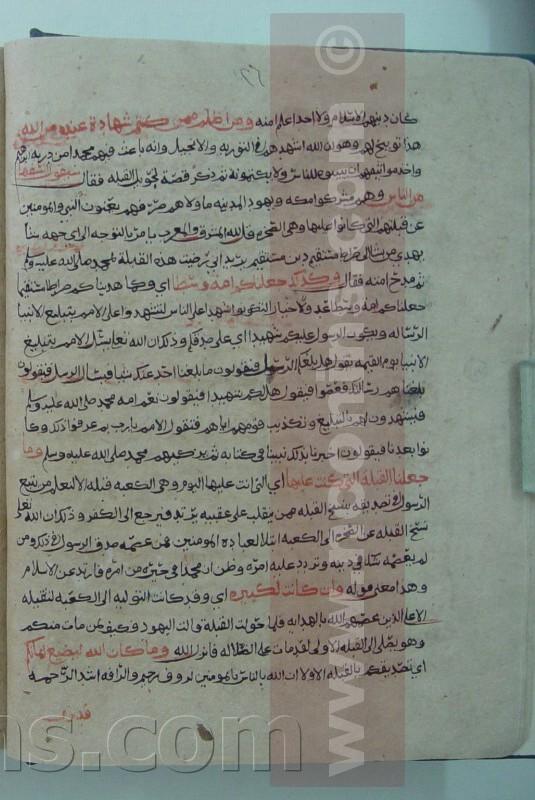 ٢٦
كان دينهم الاسلام ولا احد اعلم منه ومن اظلم ممن كتم شهادة عنده من الله
هذا توبيخ لهم وهو ان الله اشهدهم في التورية والانجيل وانه باعث فيهم محمدا من ذرية ابراهيم
واخذ مواثيقهم ان يبينوه للناس ولا يكتمونه ثم ذكر قصة تحويل القبلة فقال سيقول السفها
من الناس وهم مشركوا مكة ويهود المدينة ما ولاهم صرفهم يعنون النبي والمومنين
عن قبلتهم التي كانوا عليها وهي الصخرة قل لله المشرق والمغرب يامر بالتوجه الى اي جهة شا
يهدي من يشا الى صراط مستقيم دين مستقيم يريد اني رضيت هذه القبلة لمحمد صلى الله عليه وسلم
ثم مدح امته فقال وكذلك جعلناكم امة وسطا اي وكما هديناكم صراطا مستقيما
جعلناكم امة وسطا عدولا خيارا لتكونوا شهدا على الناس لتشهدوا على الامم بتبليغ الانبيا
الرسالة ويكون الرسول عليكم شهيدا اي على صدقكم وذلك ان الله تعالى يسئل الامم بتبليغ
الانبيا يوم القيمة يقول هل بلغكم الرسول فيقولون ما بلغنا احد عنك شيا فيسال الرسل فيقولون
بلغناهم رسالتك فعصوا فيقول هل لكم شهيد فيقولون نعم امة محمد صلى الله عليه وسلم
فيشهدون لهم بالتبليغ وتكذيب قومهم اياهم فتقول الامم يارب بم عرفوا ذلك وكا
نوا بعدنا فيقولون اخبرنا بذلك نبينا في كتابه ثم يزكيهم محمد صلى الله عليه وسلم وما
جعلنا القبلة التي كنت عليها اي التي انت عليها اليوم وهي الكعبة قبلة الا لنعلم من يتبع
الرسول في تصديقه بنسخ القبلة ممن ينقلب على عقبيه يرتد فيرجع الى الكفر وذلك ان الله تعالى
نسخ القبلة عن الصخرة الى الكعبة ابتلا لعباده المومنين فمن عصمه صدق الرسول في ذلك ومن
لم يعصمه شك في دينه وتردد عليه امره وظن ان محمدا في حيرة من امره فارتد عن الاسلام
وهذا معنى قوله وان كانت لكبيرة اي وقد كانت التولية الى الكعبة لثقيلة
الا على الذين عصمهم الله بالهداية فلما حولت القبلة قالت اليهود فكيف بمن مات منكم
وهو يصلي الى القبلة الاولى لقد مات على الضلالة فانزل الله وما كان الله ليضيع ايمانكم
اي تصديقكم بالقبلة الاولى ان الله بالناس بالمومنين لروف رحيم والرافة اشد الرحمة
قد نرى